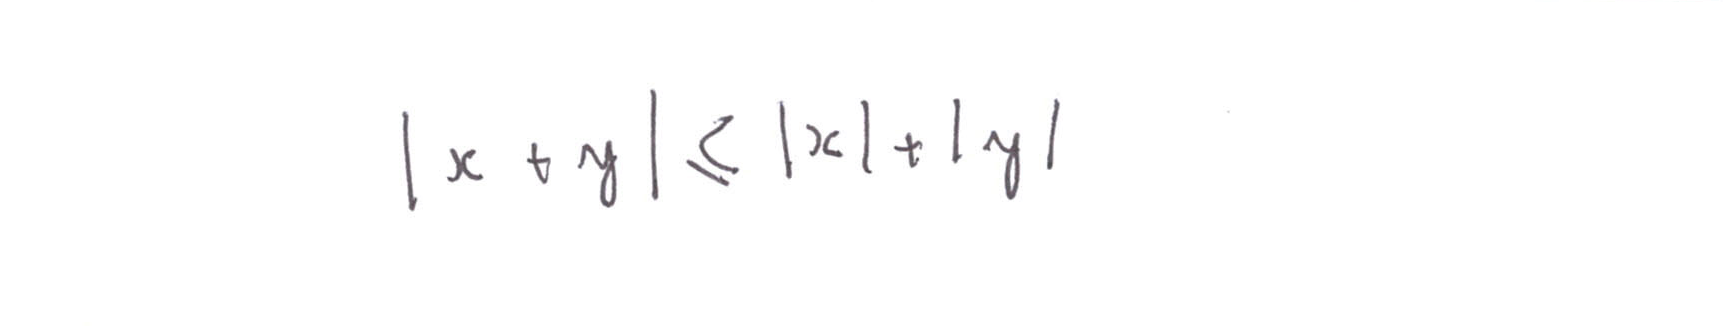 |x + y| ⩽ |x| + |y|